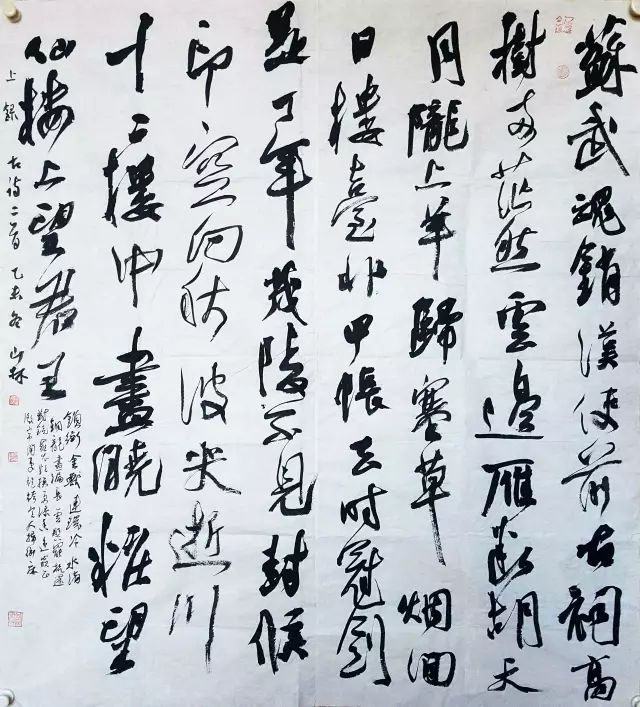 蘇武魂銷漢使前古祠高
樹兩茫然雲邊雁斷胡天
月隴上羊歸塞草烟回
日樓臺非甲帳去时冠劍
是丁年茂陵不見封侯
印空向秋波哭逝川
十二樓中盡曉粧望
仙樓上望君王
鎖銜金獸連環冷水滴
銅龍晝漏長雲髻罷梳還
對鏡羅衣欲換更添香遥窥正
殿簾開處袍袴宫人掃御床
上錄古诗二首乙未冬山林